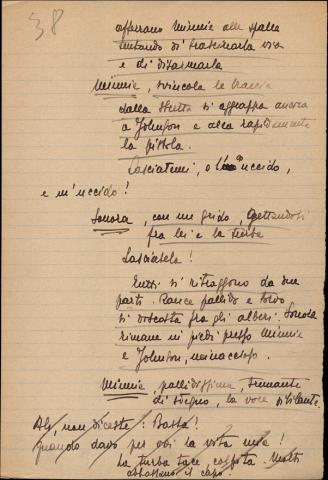 38
afferrano Minnie alle spalle
tentando di trascinarla via
e di disarmarla
Minnie, svincola le braccia
dalla stretta si aggrappa ancora
a Johnson e alza rapidamente
la pistola.
Lasciatemi, o l'uccido,
e m'uccido!
Sonora, con un grido, gettandosi
fra lei e la turba
Lasciatela!
Tutti si ritraggono da due
parti. Rance pallido e torvo
si discosta fra gli alberi. Sonora
rimane in piedi presso Minnie
e Johnson, minaccioso.
Minnie, pallidissima, tremante
di sdegno, la voce sibilante.
Ah, non diceste: Basta!
quando davo per voi la vita mia!
La turba tace, colpita. Molti
abbassano il capo.